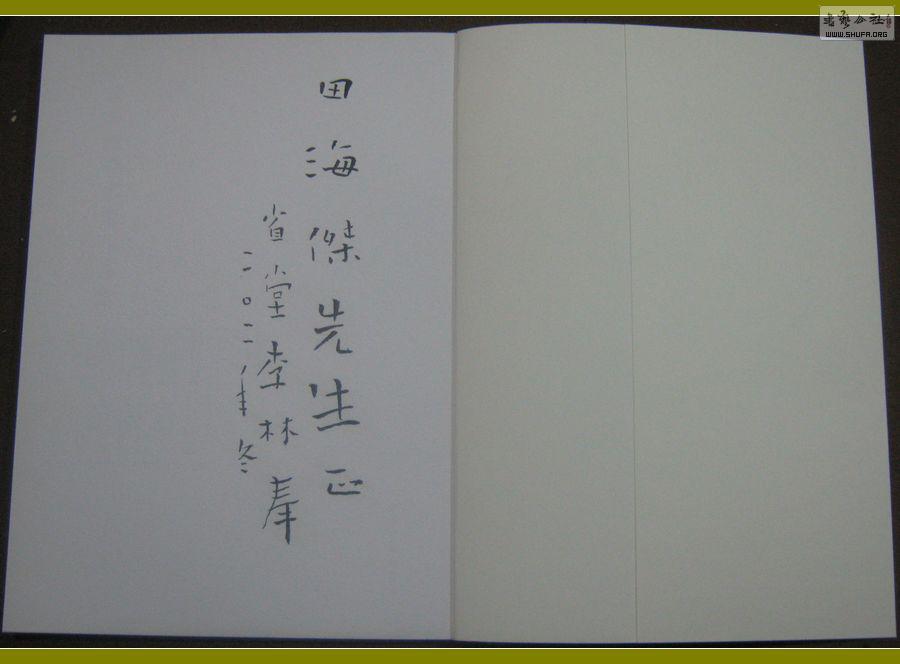 田海傑先生正
省堂李林
二〇一二年冬
書藝公社
WWW.SHUFA.ORG